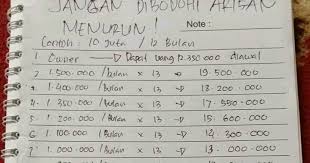 JANGAN DIBODOHI ARISAN
MENURUN !
Note :
Contoh : 10 juta / 12 Bulan
1 Owner → Dapat uang 12.350.000 diawal
2 1.500.000 /Bulan x 13 → 19.500.000
3 1.400.000 /Bulan x 13 → 18.200.000
4 1.350.000 /Bulan x 13 → 17.550.000
5 1.200.000 /Bulan x 13 → 15.600.000
6 1.100.000 /Bulan x 13 → 14.300.000
7 1.000.000 /Bulan x 13 → 13.000.000